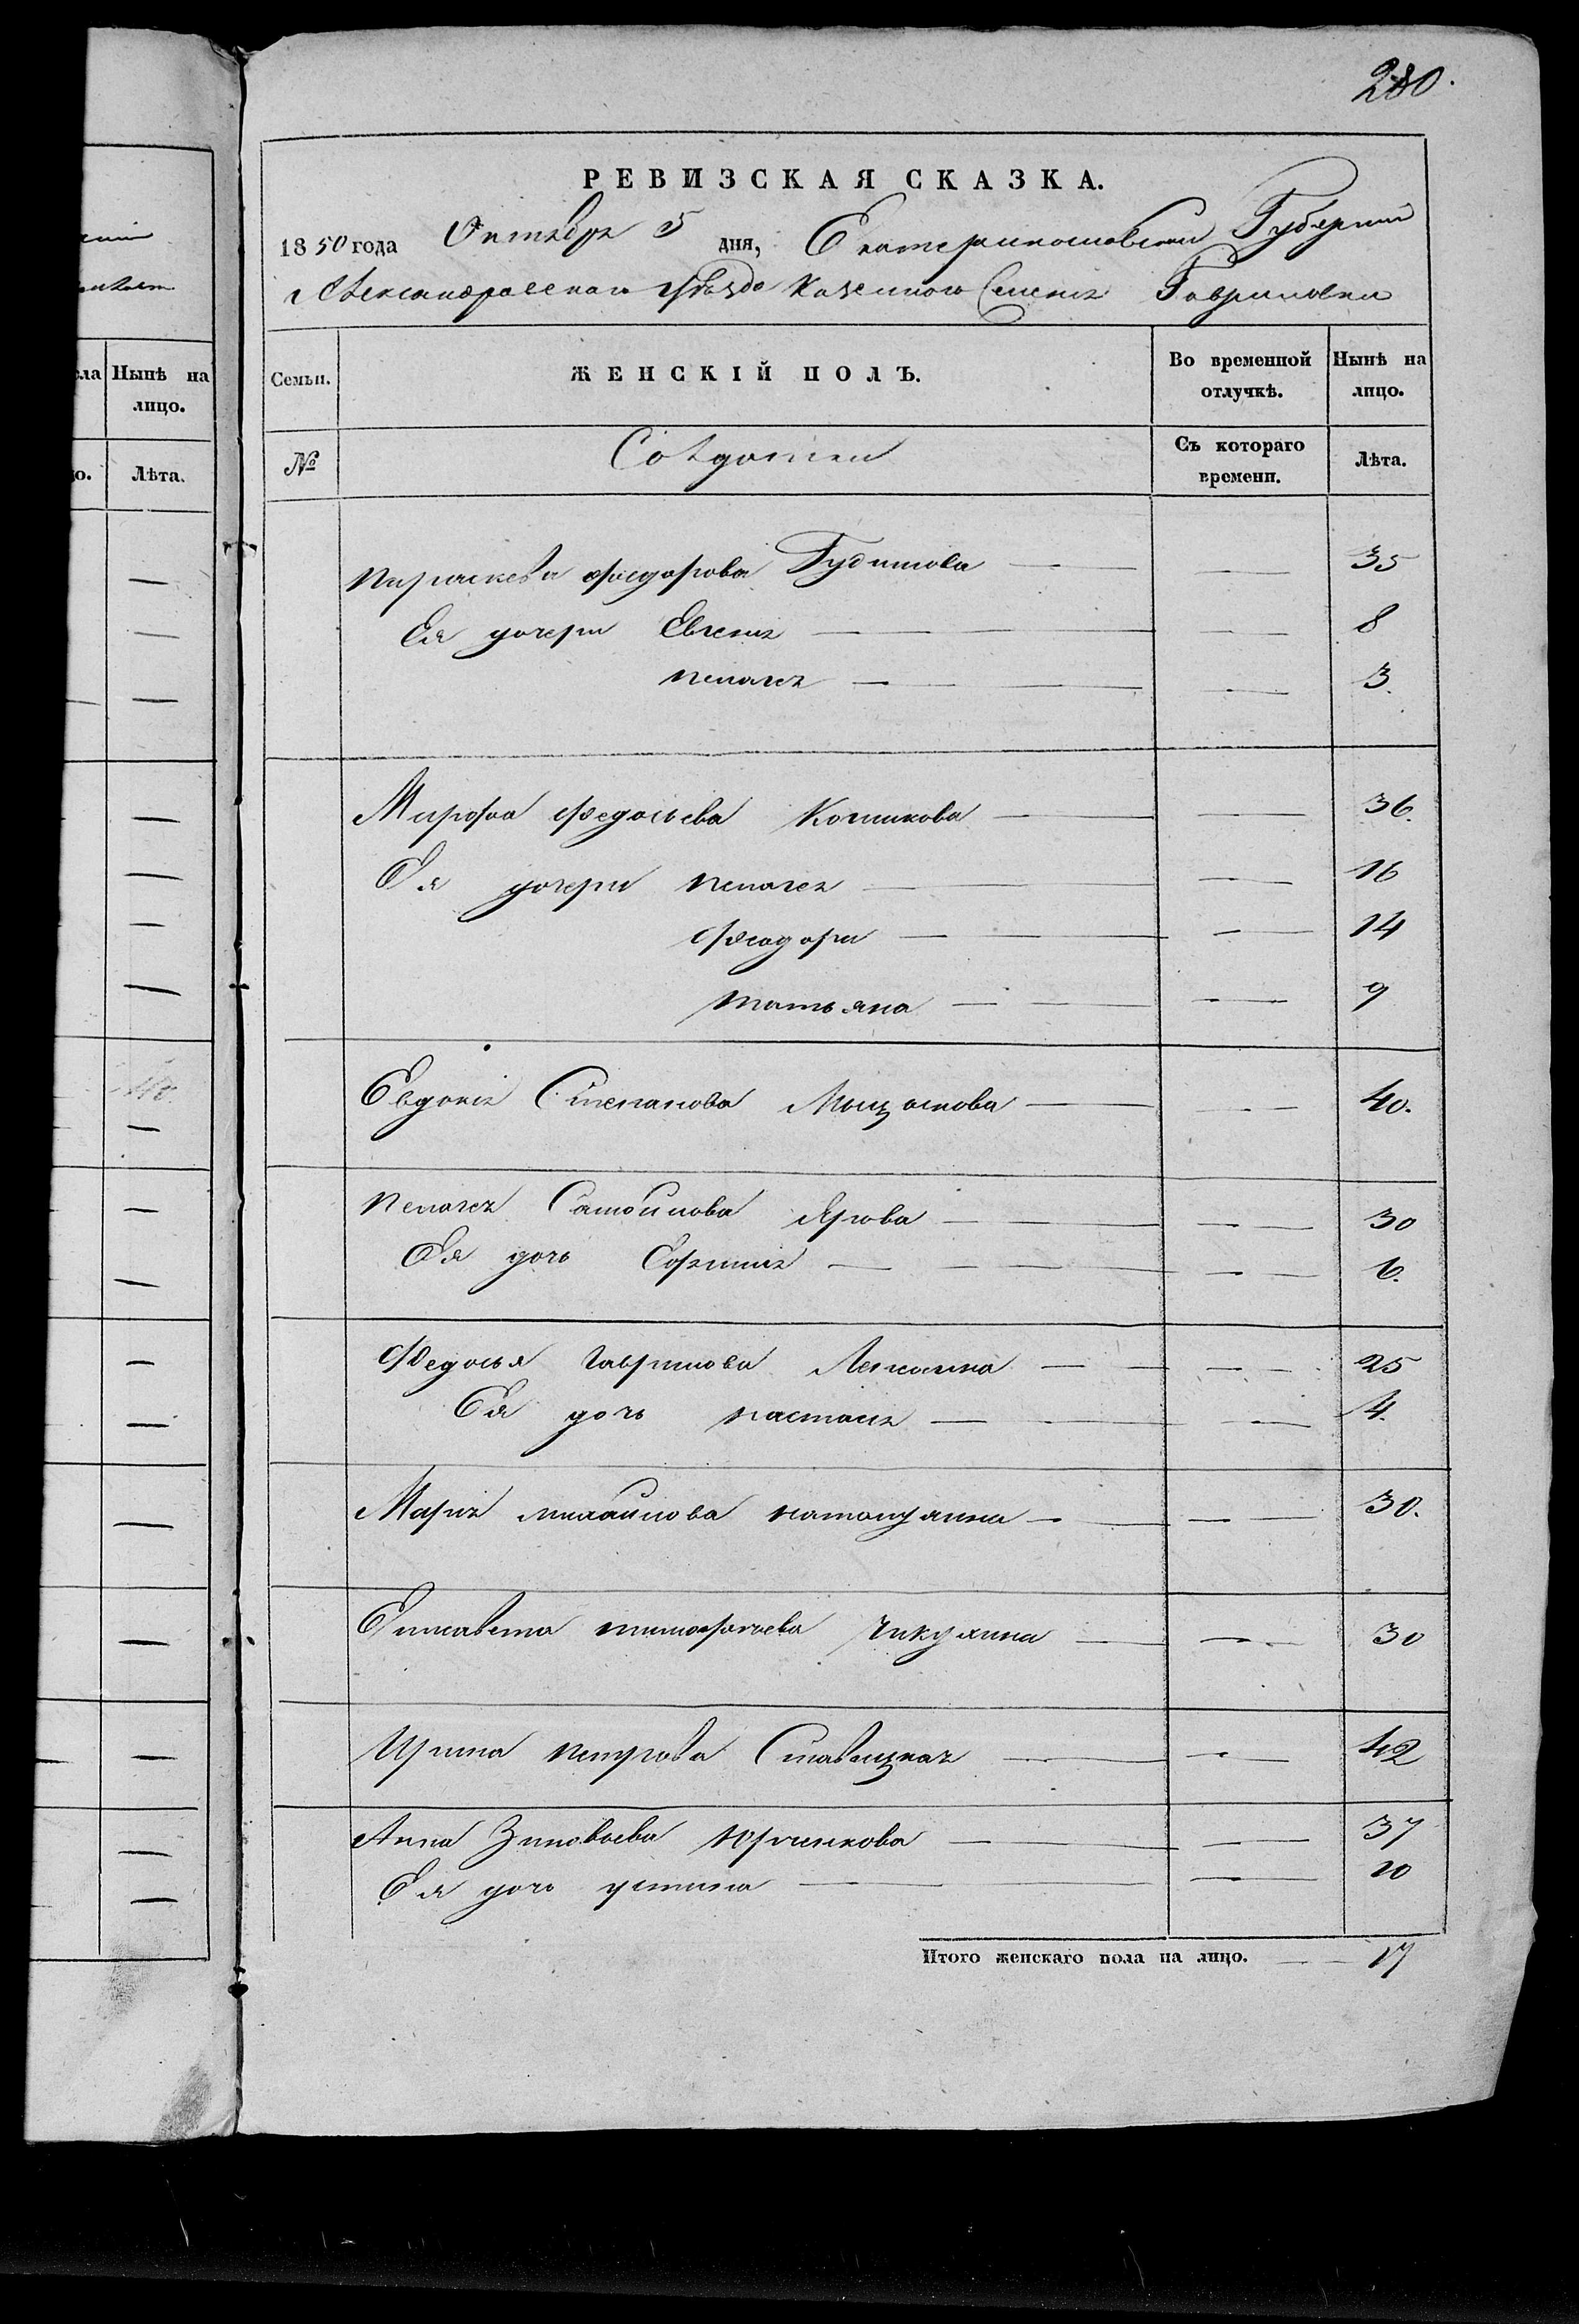 280.
РЕВИЗСКАЯ СКАЗКА.
1850 года Октября 5 дня, Екатеринославской Губернии
Александровскаго уѣзда Казенного Селенія Гавриловки
Семьи. ЖЕНСКІЙ ПОЛЪ. Во временной отлучкѣ. Нынѣ на лицо.
№ Солдатки Съ котораго времени. Лѣта.
Параскева Феодорова Гудимова — — 35
Ея дочери Евгенія — — 8
Пелагея — — 3.
Марфа Федосьева Котикова — — 36.
Ея дочери Пелагея — — 16
Феодора — — 14
Татьяна — — 9
Евдокія Степанова — — 40.
Пелагея Самойлова Ярова — — 30
Ея дочь Ефимія — — 6.
Федосья Гаврилова — — 25
Ея дочь Настасія — — 4.
Марія Михайлова — — 30.
Елисавета Тимофеева Чикулина — — 30
Ирина Петрова Ставицкая — — 42
Анна Зиновьева Юрченкова — — 37
Ея дочь Устина — — 10
Итого женскаго пола на лицо. — — 17
Нынѣ на лицо.
Лѣта.